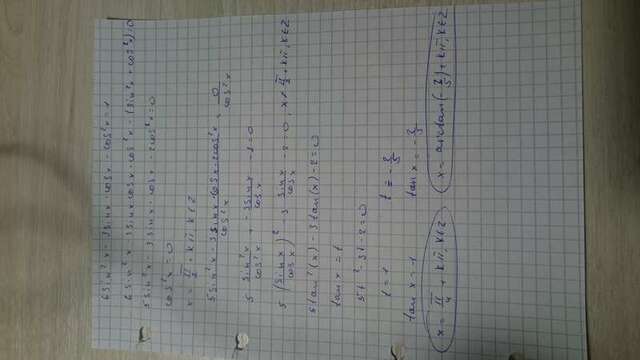 6sin²x - 3sinx·cosx - cos²x = 1
6sin²x - 3sinx cosx - cos²x - (sin²x + cos²x) = 0
5sin²x - 3sinx·cosx - 2cos²x = 0
cos²x = 0
x = π/2 + kπ, k∈Z
(5sin²x - 3sinx·cosx - 2cos²x)/cos²x = 0/cos²x
5 sin²x/cos²x + -3sinx/cosx - 2 = 0
5 (sinx/cosx)² - 3 sinx/cosx - 2 = 0, x ≠ π/2 + kπ, k∈Z
5tan²(x) - 3tan(x) - 2 = 0
tanx = t
5t² - 3t - 2 = 0
t = 1 t = -2/5
tanx = 1 tanx = -2/5
x = π/4 + kπ, k∈Z x = arctan(-2/5) + kπ, k∈Z